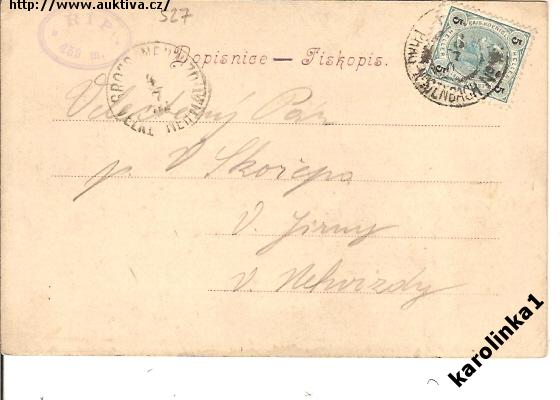 http://www.auktiva.cz/
327
ŘÍP
459 m.
Dopisnice — Tiskopis.
5
5
5
Velectěný Pán
p. V Skořepa
V. Jirny
v. Nehvizdy
karolinka1